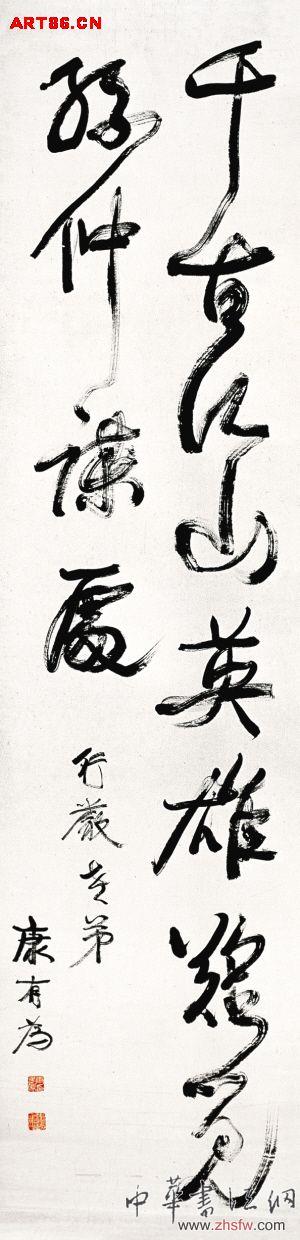 ART86.CN
千古江山英雄難覓
孫仲謀處
行嚴老弟
康有為
中華書法網
www.zhsfw.com